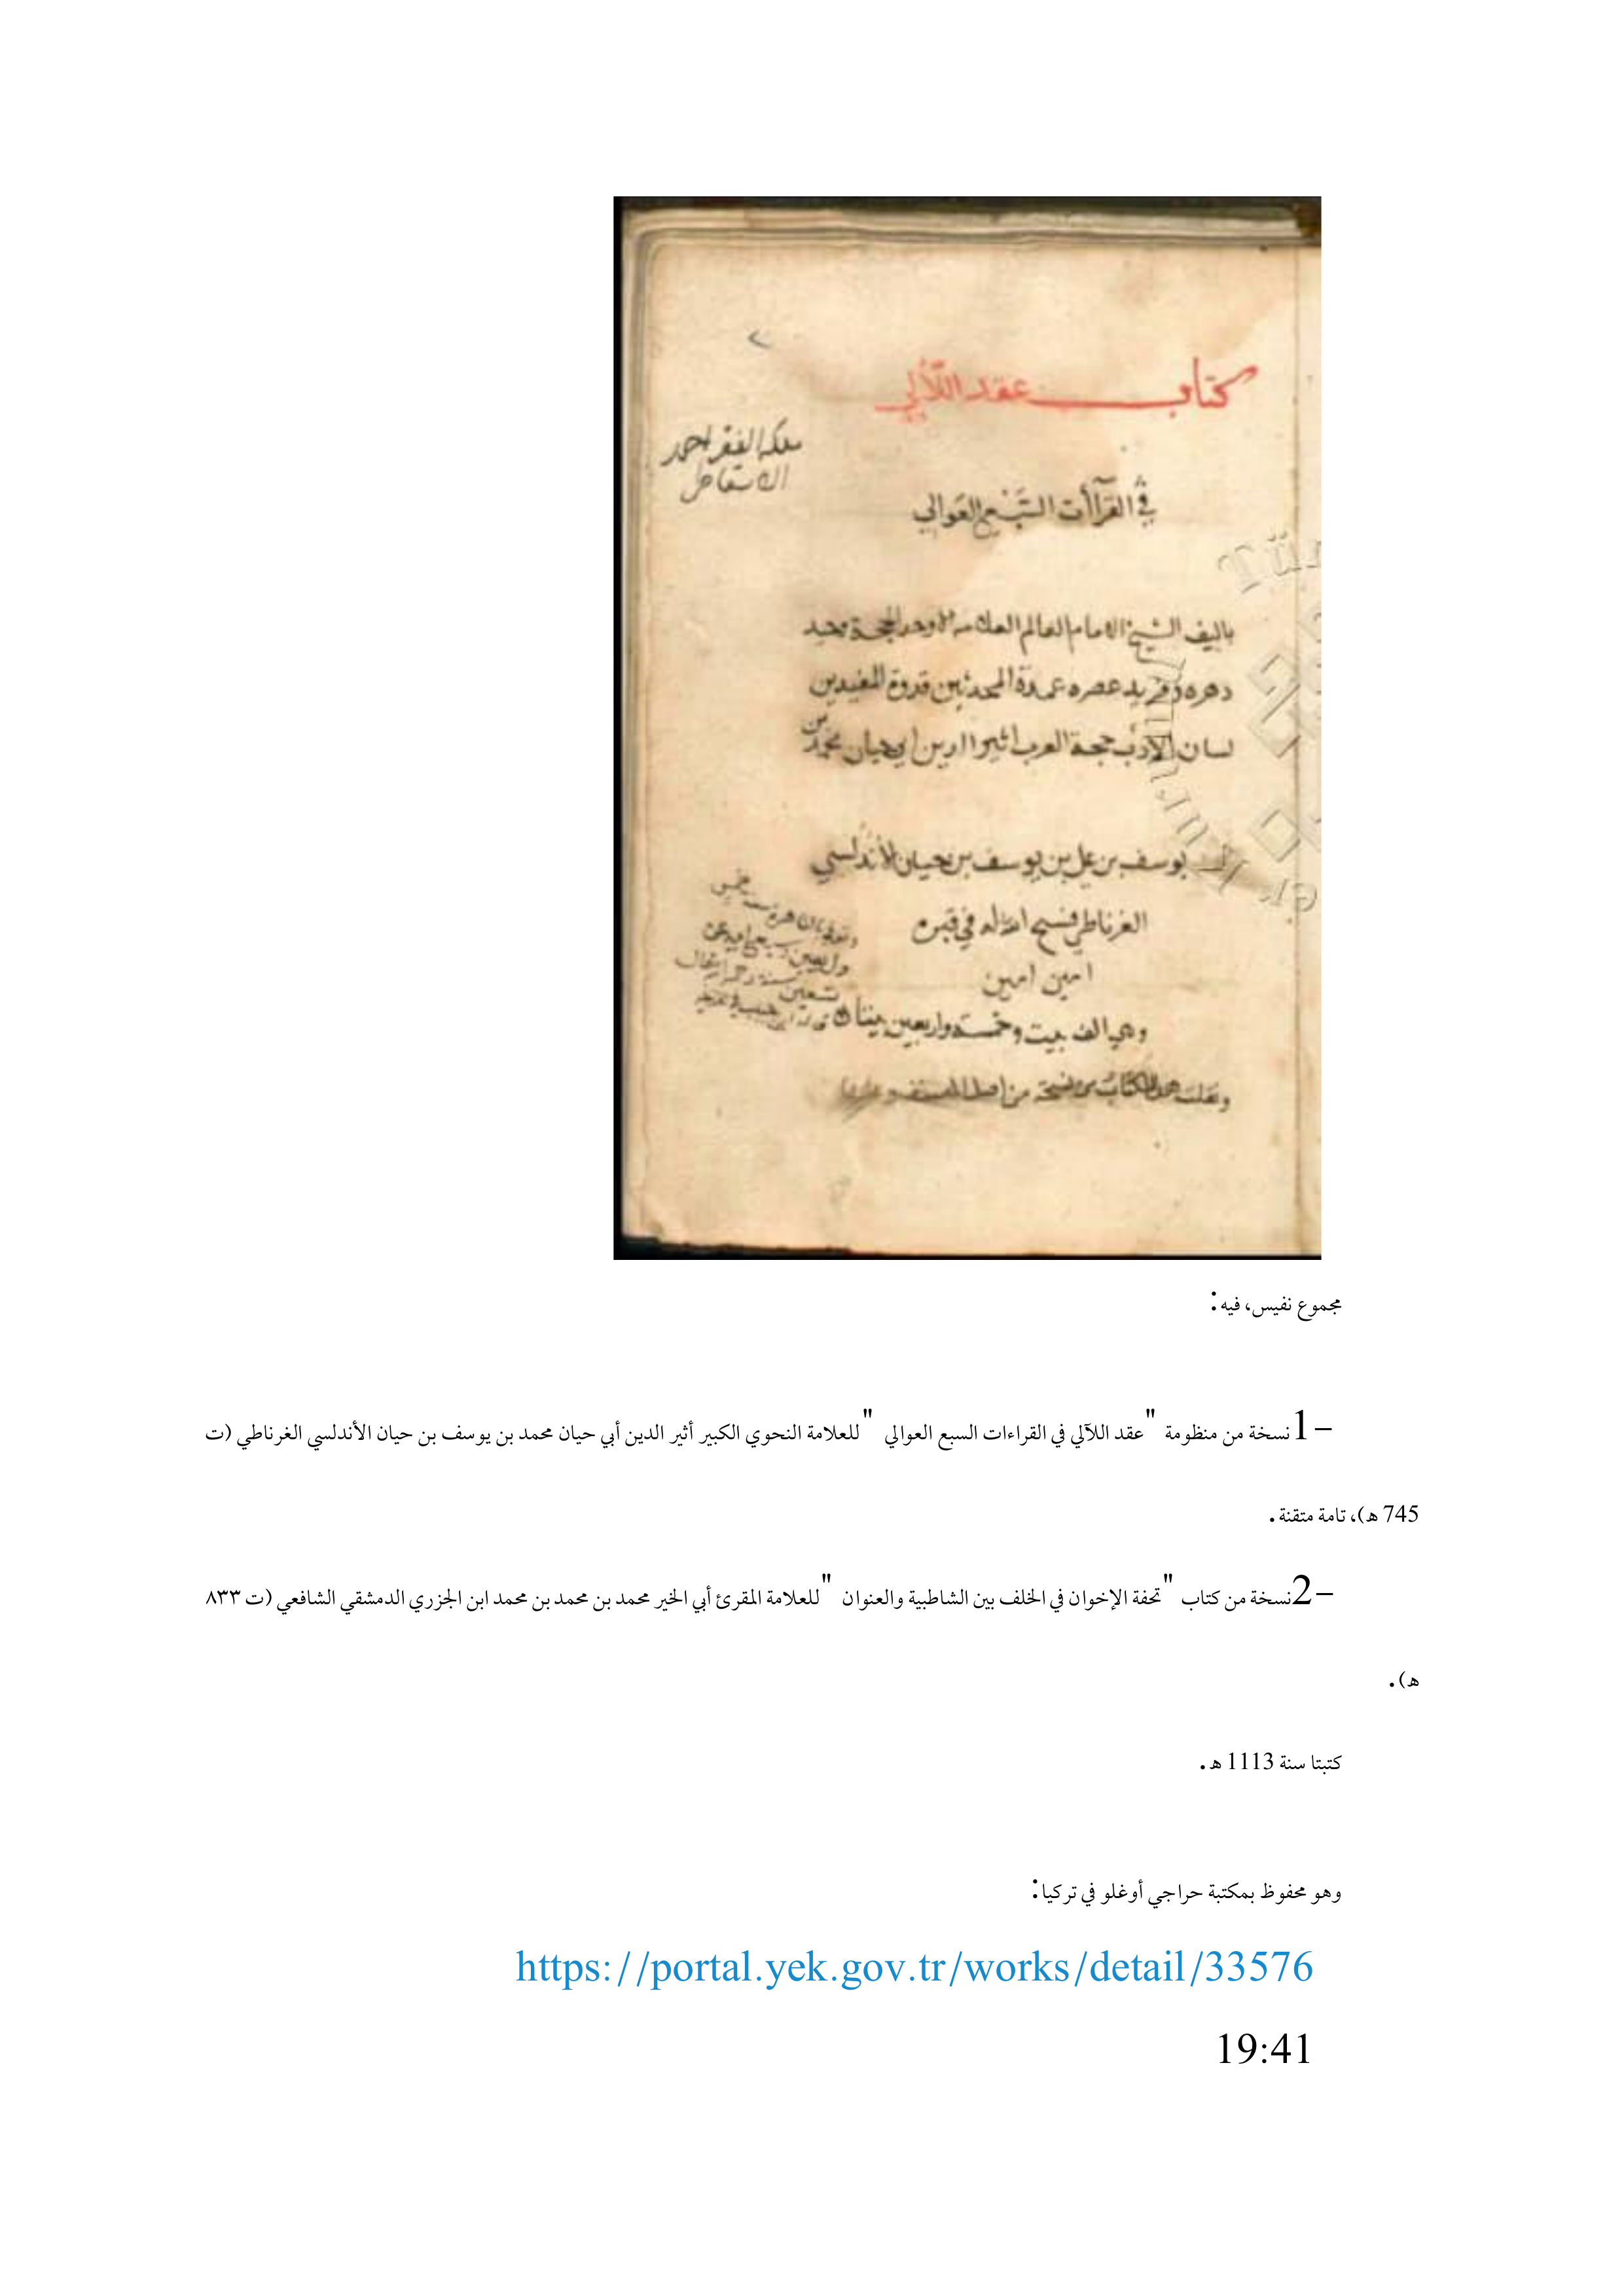 كتاب عقد اللآلي
ملكه الفقير احمد
الاسقاطي
في القرآأت السَّبْع العَوالي
تاليف الشيخ الامام العالم العلامه الاوحد الحجة وحيد
دهره وفريد عصره عمدة المحدثين قدوة المفيدين
لسان الأدب حجة العرب اثير الدين ابي حيان محمد بن
يوسف بن علي بن يوسف بن حيان الأندلسي
الغرناطي فسح الله له في قبره
امين امين
وهي الف بيت وخمسة واربعين بيتا
ونقلت هذا الكتاب من نسخة من اصل المصنف
مجموع نفيس، فيه:
1– نسخة من منظومة "عقد اللآلي في القراءات السبع العوالي" للعلامة النحوي الكبير أثير الدين أبي حيان محمد بن يوسف بن حيان الأندلسي الغرناطي (ت
745 هـ)، تامة متقنة.
2– نسخة من كتاب "تحفة الإخوان في الخلف بين الشاطبية والعنوان" للعلامة المقرئ أبي الخير محمد بن محمد بن محمد ابن الجزري الدمشقي الشافعي (ت ٨٣٣
هـ).
كتبتا سنة 1113 هـ.
وهو محفوظ بمكتبة حراجي أوغلو في تركيا:
https://portal.yek.gov.tr/works/detail/33576
19:41